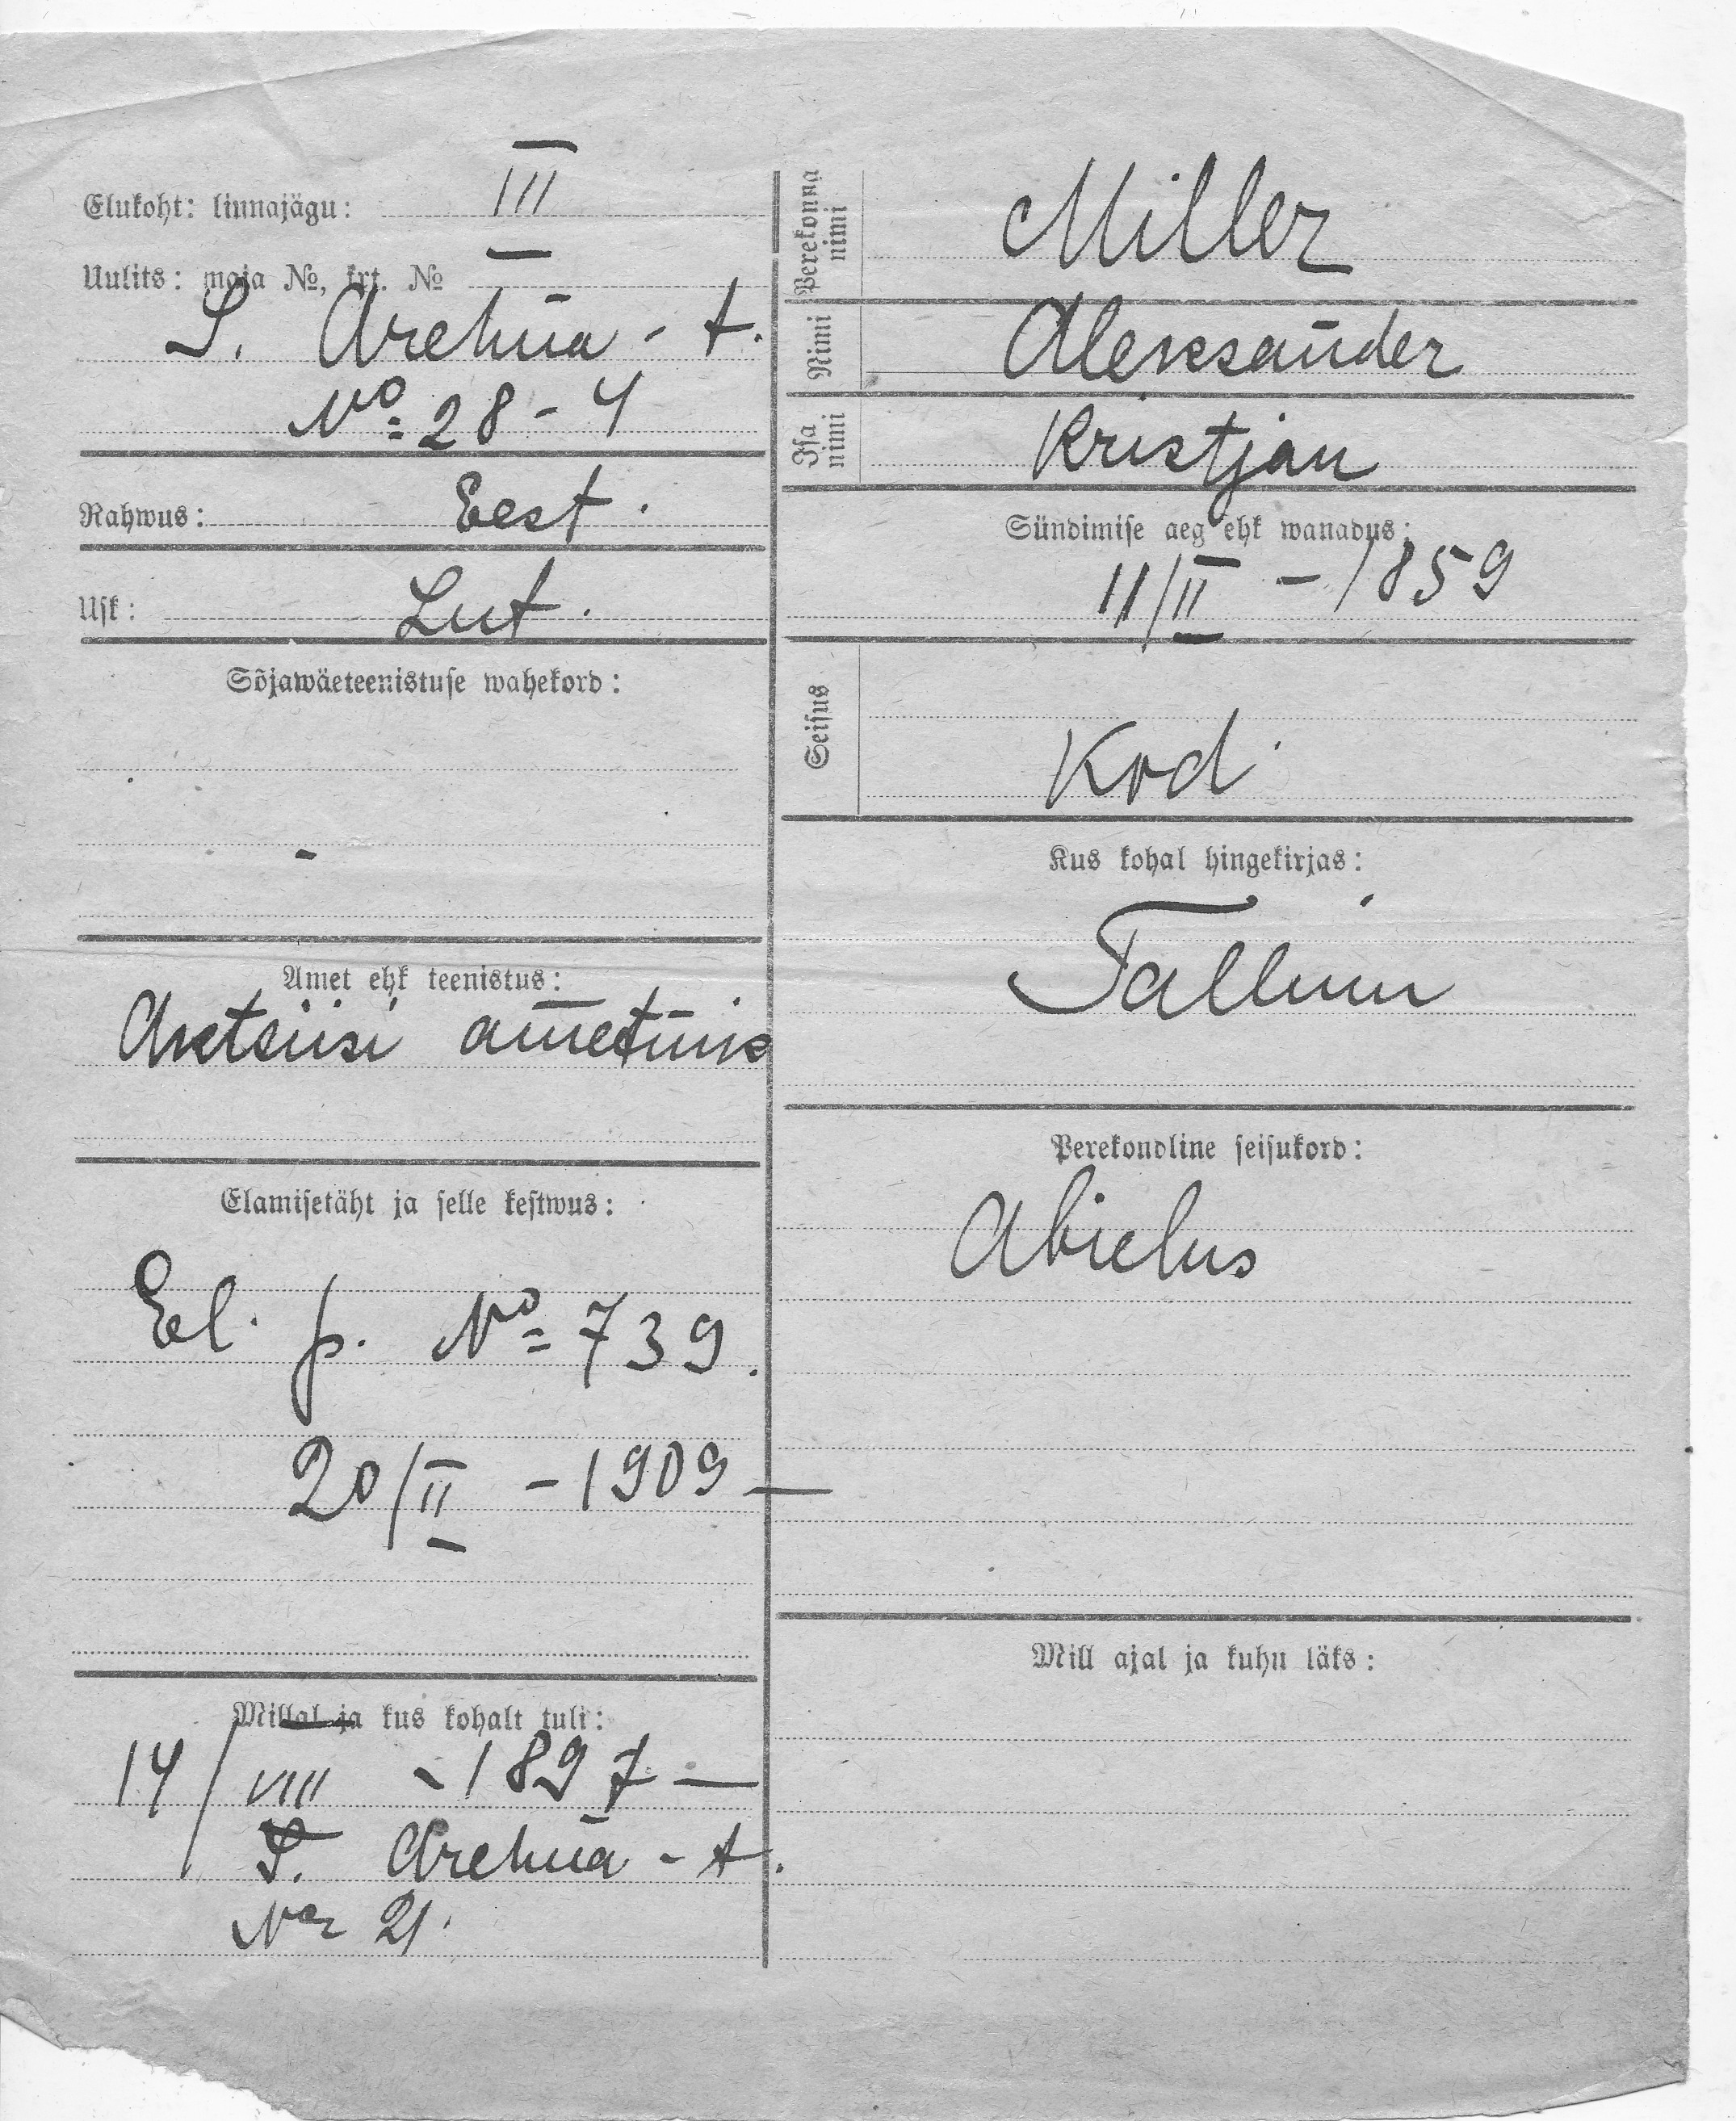 Elukoht: linnajägu: III
Uulits: maja №, krt. №
S. Arehna - t.
№ 28 - 4
Rahwus: Eest.
Usk: Lut.
Sõjawäeteenistuse wahekord:
-
Amet ehk teenistus:
Aktsiisi ametnik
Elamisetäht ja selle kestwus:
Eel. p. № 739.
20/II - 1909 —
Millal ja kus kohalt tuli:
14/VIII - 1897 —
S. Arehna - t.
№ 21.
Perekonna nimi
Miller
Nimi
Aleksander
Isa nimi
Kristjan
Sündimise aeg ehk wanadus:
11/II - 1859
Seisus
Kod.
Kus kohal hingekirjas:
Tallinn
Perekondline seisukord:
Abielus
Mill ajal ja kuhu läks: